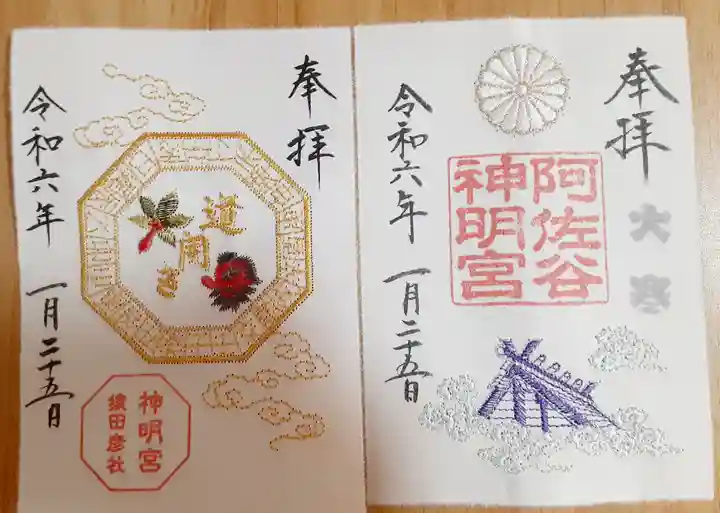 奉拝
道開き
令和六年 一月二十五日
神明宮
猿田彦社
奉拝
大寒
阿佐谷
神明宮
令和六年 一月二十五日